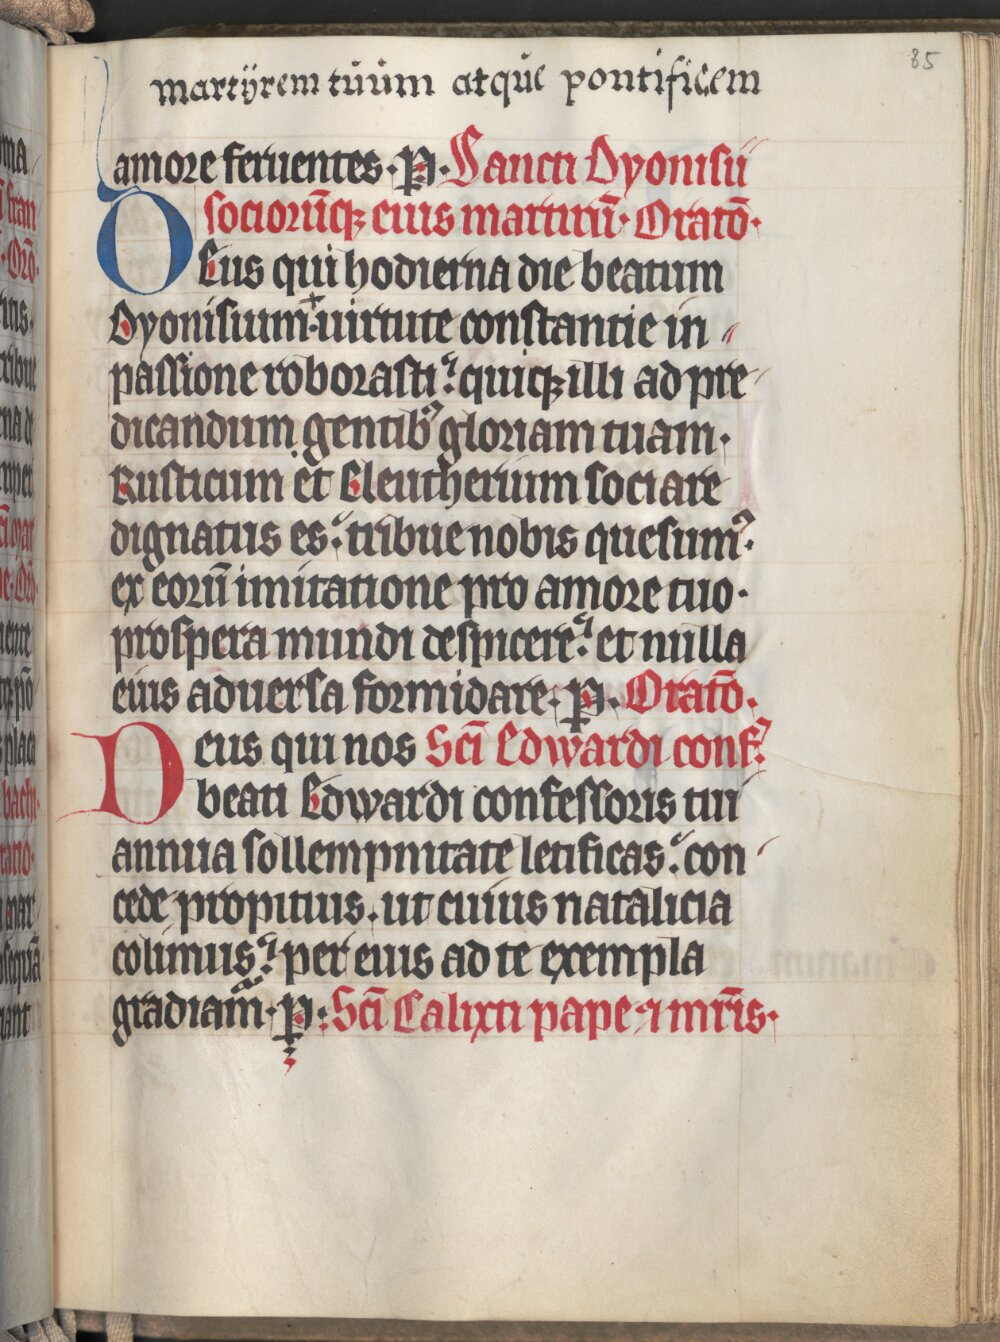 85
martyrem tuum atque pontificem
amore feruentes. p. Sancti Dyonisii
sociorūq; eius martirū. Oratō.
Deus qui hodierna die beatum
Dyonisium + uirtute constantie in
passione roborasti: quiq; illi ad pre
dicandum gentibꝰ gloriam tuam.
Rusticum et Eleutherium sociare
dignatus es: tribue nobis quesumꝰ.
ex eorū imitatione pro amore tuo.
prospera mundi despicere: et nulla
eius aduersa formidare. p. Oratō.
Deus qui nos Sc̄i Edwardi conf.
beati Edwardi confessoris tui
annua sollempnitate letificas: con
cede propitius. ut cuius natalicia
colimus: per eius ad te exempla
gradiam̄. p. Sc̄i Calixti pape ⁊ mr̄is.